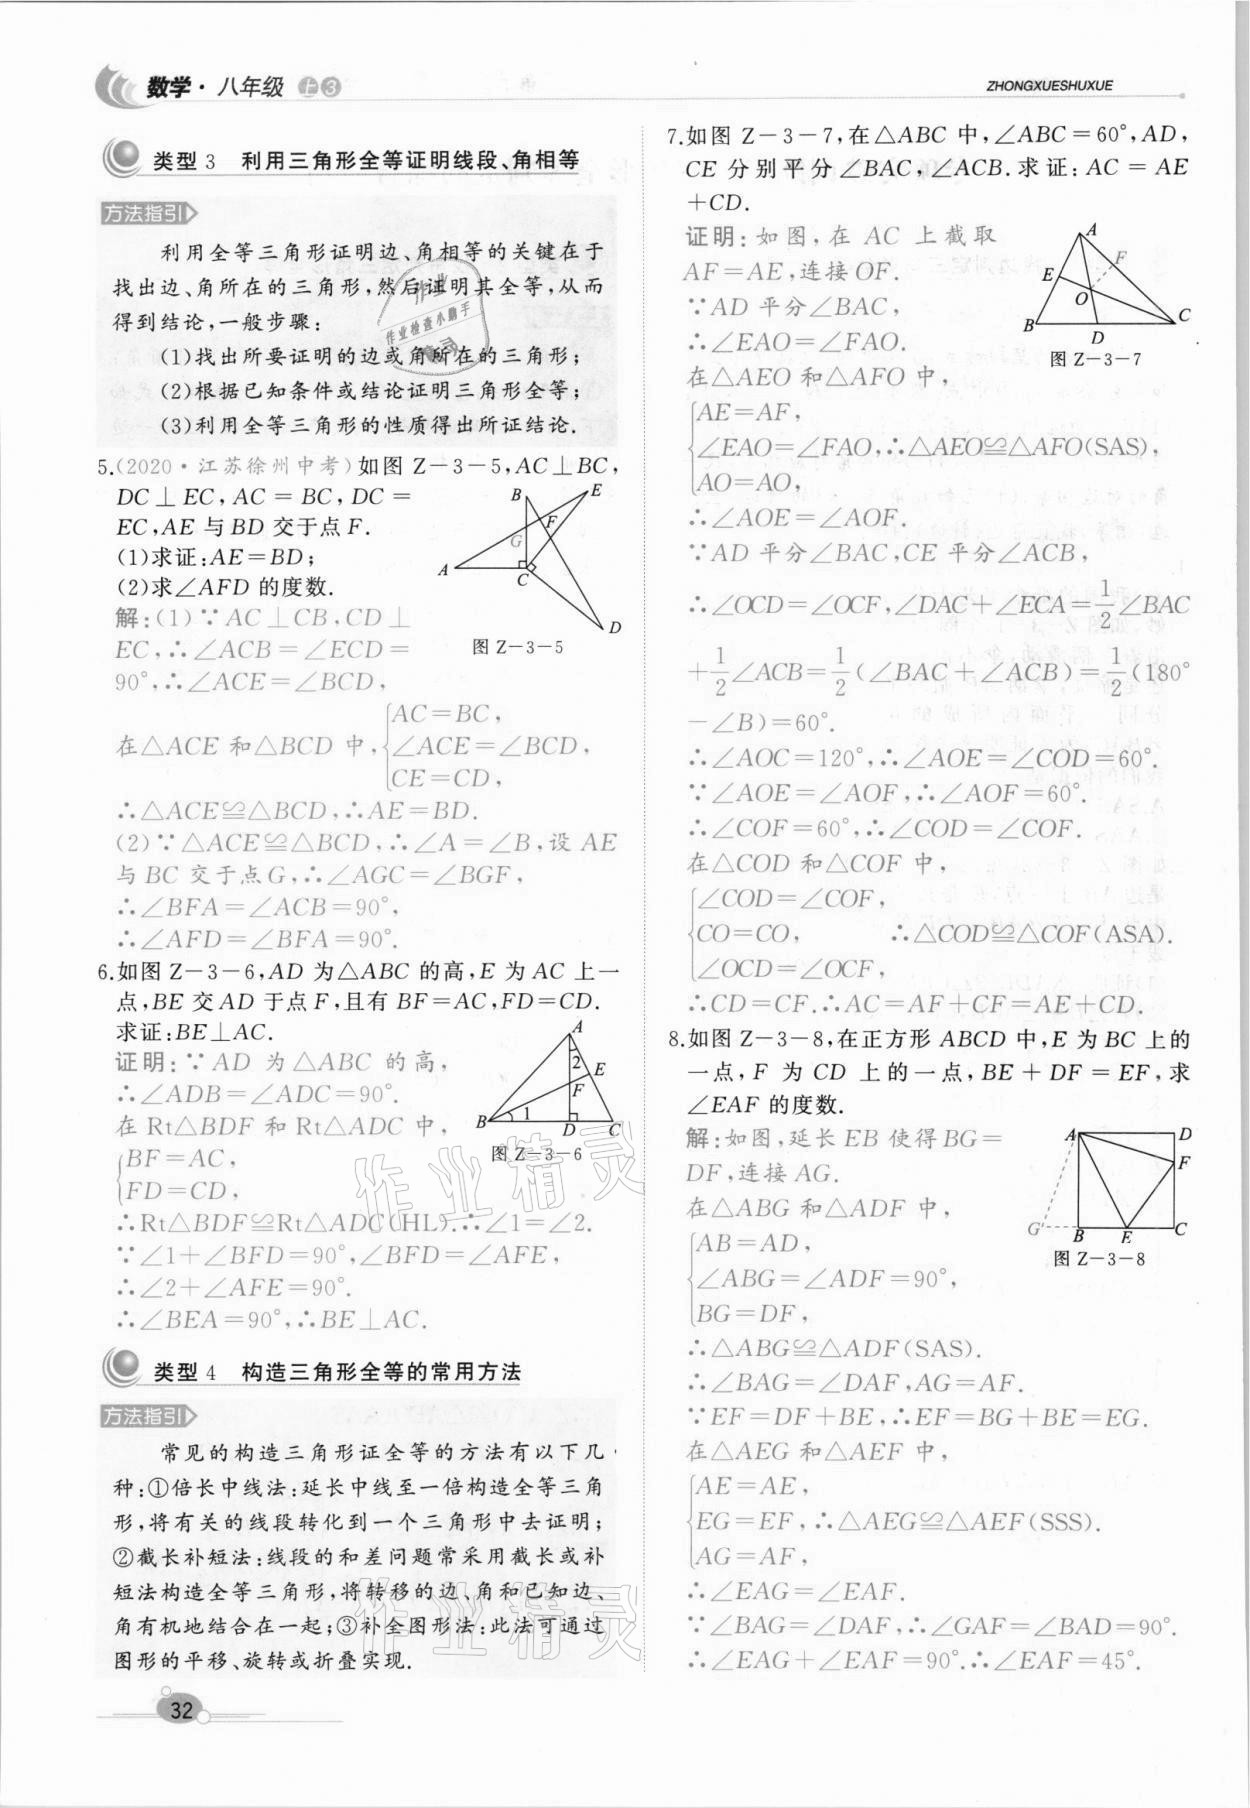 数学·八年级 上 3
ZHONGXUESHUXUE
类型 3 利用三角形全等证明线段、角相等
方法指引
利用全等三角形证明边、角相等的关键在于
找出边、角所在的三角形,然后证明其全等,从而
得到结论,一般步骤:
(1)找出所要证明的边或角所在的三角形;
(2)根据已知条件或结论证明三角形全等;
(3)利用全等三角形的性质得出所证结论.
5.(2020·江苏徐州中考)如图 Z-3-5,AC⊥BC,
DC⊥EC,AC=BC,DC=
EC,AE 与 BD 交于点 F.
(1)求证:AE=BD;
(2)求∠AFD 的度数.
B E F G A C D
图 Z-3-5
解:(1)∵AC⊥CB,CD⊥
EC,∴∠ACB=∠ECD=
90°,∴∠ACE=∠BCD,
在△ACE 和△BCD 中,
AC=BC,
∠ACE=∠BCD,
CE=CD,
∴△ACE≌△BCD,∴AE=BD.
(2)∵△ACE≌△BCD,∴∠A=∠B,设 AE
与 BC 交于点 G,∴∠AGC=∠BGF,
∴∠BFA=∠ACB=90°,
∴∠AFD=∠BFA=90°.
6.如图 Z-3-6,AD 为△ABC 的高,E 为 AC 上一
点,BE 交 AD 于点 F,且有 BF=AC,FD=CD.
求证:BE⊥AC.
A 2 E F B 1 D C
图 Z-3-6
证明:∵AD 为△ABC 的高,
∴∠ADB=∠ADC=90°.
在 Rt△BDF 和 Rt△ADC 中,
BF=AC,
FD=CD,
∴Rt△BDF≌Rt△ADC(HL).∴∠1=∠2.
∵∠1+∠BFD=90°,∠BFD=∠AFE,
∴∠2+∠AFE=90°.
∴∠BEA=90°,∴BE⊥AC.
类型 4 构造三角形全等的常用方法
方法指引
常见的构造三角形证全等的方法有以下几
种:①倍长中线法:延长中线至一倍构造全等三角
形,将有关的线段转化到一个三角形中去证明;
②截长补短法:线段的和差问题常采用截长或补
短法构造全等三角形,将转移的边、角和已知边、
角有机地结合在一起;③补全图形法:此法可通过
图形的平移、旋转或折叠实现.
32
7.如图 Z-3-7,在△ABC 中,∠ABC=60°,AD,
CE 分别平分∠BAC,∠ACB.求证:AC=AE
+CD.
A F E O B D C
图 Z-3-7
证明:如图,在 AC 上截取
AF=AE,连接 OF.
∵AD 平分∠BAC,
∴∠EAO=∠FAO.
在△AEO 和△AFO 中,
AE=AF,
∠EAO=∠FAO,∴△AEO≌△AFO(SAS),
AO=AO,
∴∠AOE=∠AOF.
∵AD 平分∠BAC,CE 平分∠ACB,
∴∠OCD=∠OCF,∠DAC+∠ECA=1/2∠BAC
+1/2∠ACB=1/2(∠BAC+∠ACB)=1/2(180°
-∠B)=60°.
∴∠AOC=120°,∴∠AOE=∠COD=60°.
∵∠AOE=∠AOF,∴∠AOF=60°.
∴∠COF=60°,∴∠COD=∠COF.
在△COD 和△COF 中,
∠COD=∠COF,
CO=CO, ∴△COD≌△COF(ASA).
∠OCD=∠OCF,
∴CD=CF.∴AC=AF+CF=AE+CD.
8.如图 Z-3-8,在正方形 ABCD 中,E 为 BC 上的
一点,F 为 CD 上的一点,BE+DF=EF,求
∠EAF 的度数.
A D F G B E C
图 Z-3-8
解:如图,延长 EB 使得 BG=
DF,连接 AG.
在△ABG 和△ADF 中,
AB=AD,
∠ABG=∠ADF=90°,
BG=DF,
∴△ABG≌△ADF(SAS).
∴∠BAG=∠DAF,AG=AF.
∵EF=DF+BE,∴EF=BG+BE=EG.
在△AEG 和△AEF 中,
AE=AE,
EG=EF,∴△AEG≌△AEF(SSS).
AG=AF,
∴∠EAG=∠EAF.
∵∠BAG=∠DAF,∴∠GAF=∠BAD=90°.
∴∠EAG+∠EAF=90°.∴∠EAF=45°.
作业
作业检查小助手
精灵
作业精灵
作业精灵